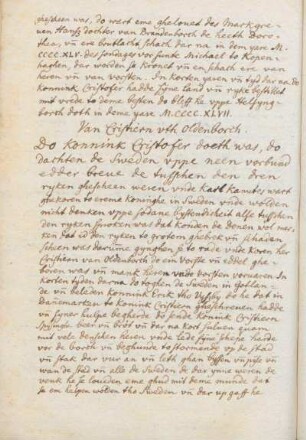 ghescheen was, do wart eme ghelovet des Markgre-
uen Hansß dochter van Brandenborch de heeth Doro-
thea, un ere brutlacht schach dar na in dem yare M.
CCCC.XLV. des sondages vor sunte Michael to Kopen-
haghen, dar worden se kronet un en schach ere van
heren un van vorsten. In korten yaren
konnink Cristofer hadde syne land un ryke besittet
mit vrede to deme besten do bleff he uppe Helsyng-
borch doth in deme yare M.CCCC.XLVII.
Van Cristiern uth Oldenborch
Do konnink Cristofer doeth was, do
dachten de Sweden uppe neen vorbund
edder breve de tusschen den dren
ryken ghescheen weren unde karl knutes wart
ghekoren to ereme koninghe in Sweden unde wolden
nicht denken uppe sodane bystendicheit alse tusschen
den ryken suoren was dat konden de denen wol mer-
ken dat id den ryken to grotem schaden
scheen were darumme gynghen se to rade unde koren her
Cristiern van Oldenborch do en vorste un eddel ghe-
boren was un mank heren unde vorsten vorvaren In
korten tiden dar na do toghen de Sweden in Gotlan-
de un beleiden konnink Erik tho Wysby do he dat in
Dannemarken to konink Cristierne ghescreven hadde
un syner hulpe begherde do sende konink Cristiern
vor un dar na kort sulven quam
mit velen denschen heren unde lede syne schepe harde
vor de borch un beghunde to stormende uppe de stad
un stak dar vur an un leth ghan bussen un pile un
wan de stad un alle de Sweden de dar ynne weren de
venk he se loveden eme ghud mit deme munde dat
se em helpen wolden tho Sweden un dar up gaff he